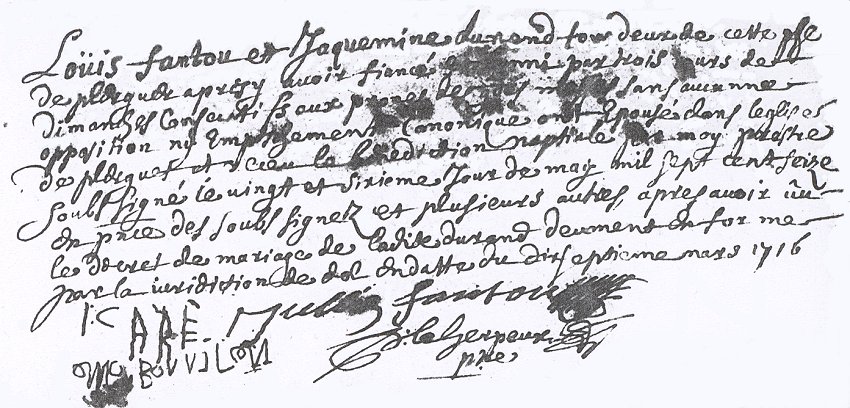 Loüis fantou et Jaquemine durand tous deux de cette psse
de plerguer apresy avoir fiancé et banni par trois jours de
dimanches Consecutifs aux prones de nos messes sans aucunne
opposition ny Empeschement Canonique ont Epousé dans leglise
de plerguer et receu la benediction nuptiale par moy prestre
soubs signé le vingt et sixieme Jour de may mil sept cent seize
En pnce des soubs signez et plusieurs autres, apres avoir vüe
le decret de mariage de ladite durand deument En forme
par la iuridiction de dol En datte du dixseptieme mars 1716
I: C ARE. Jullien fantou
BOVVILON
le herpeux
ptre